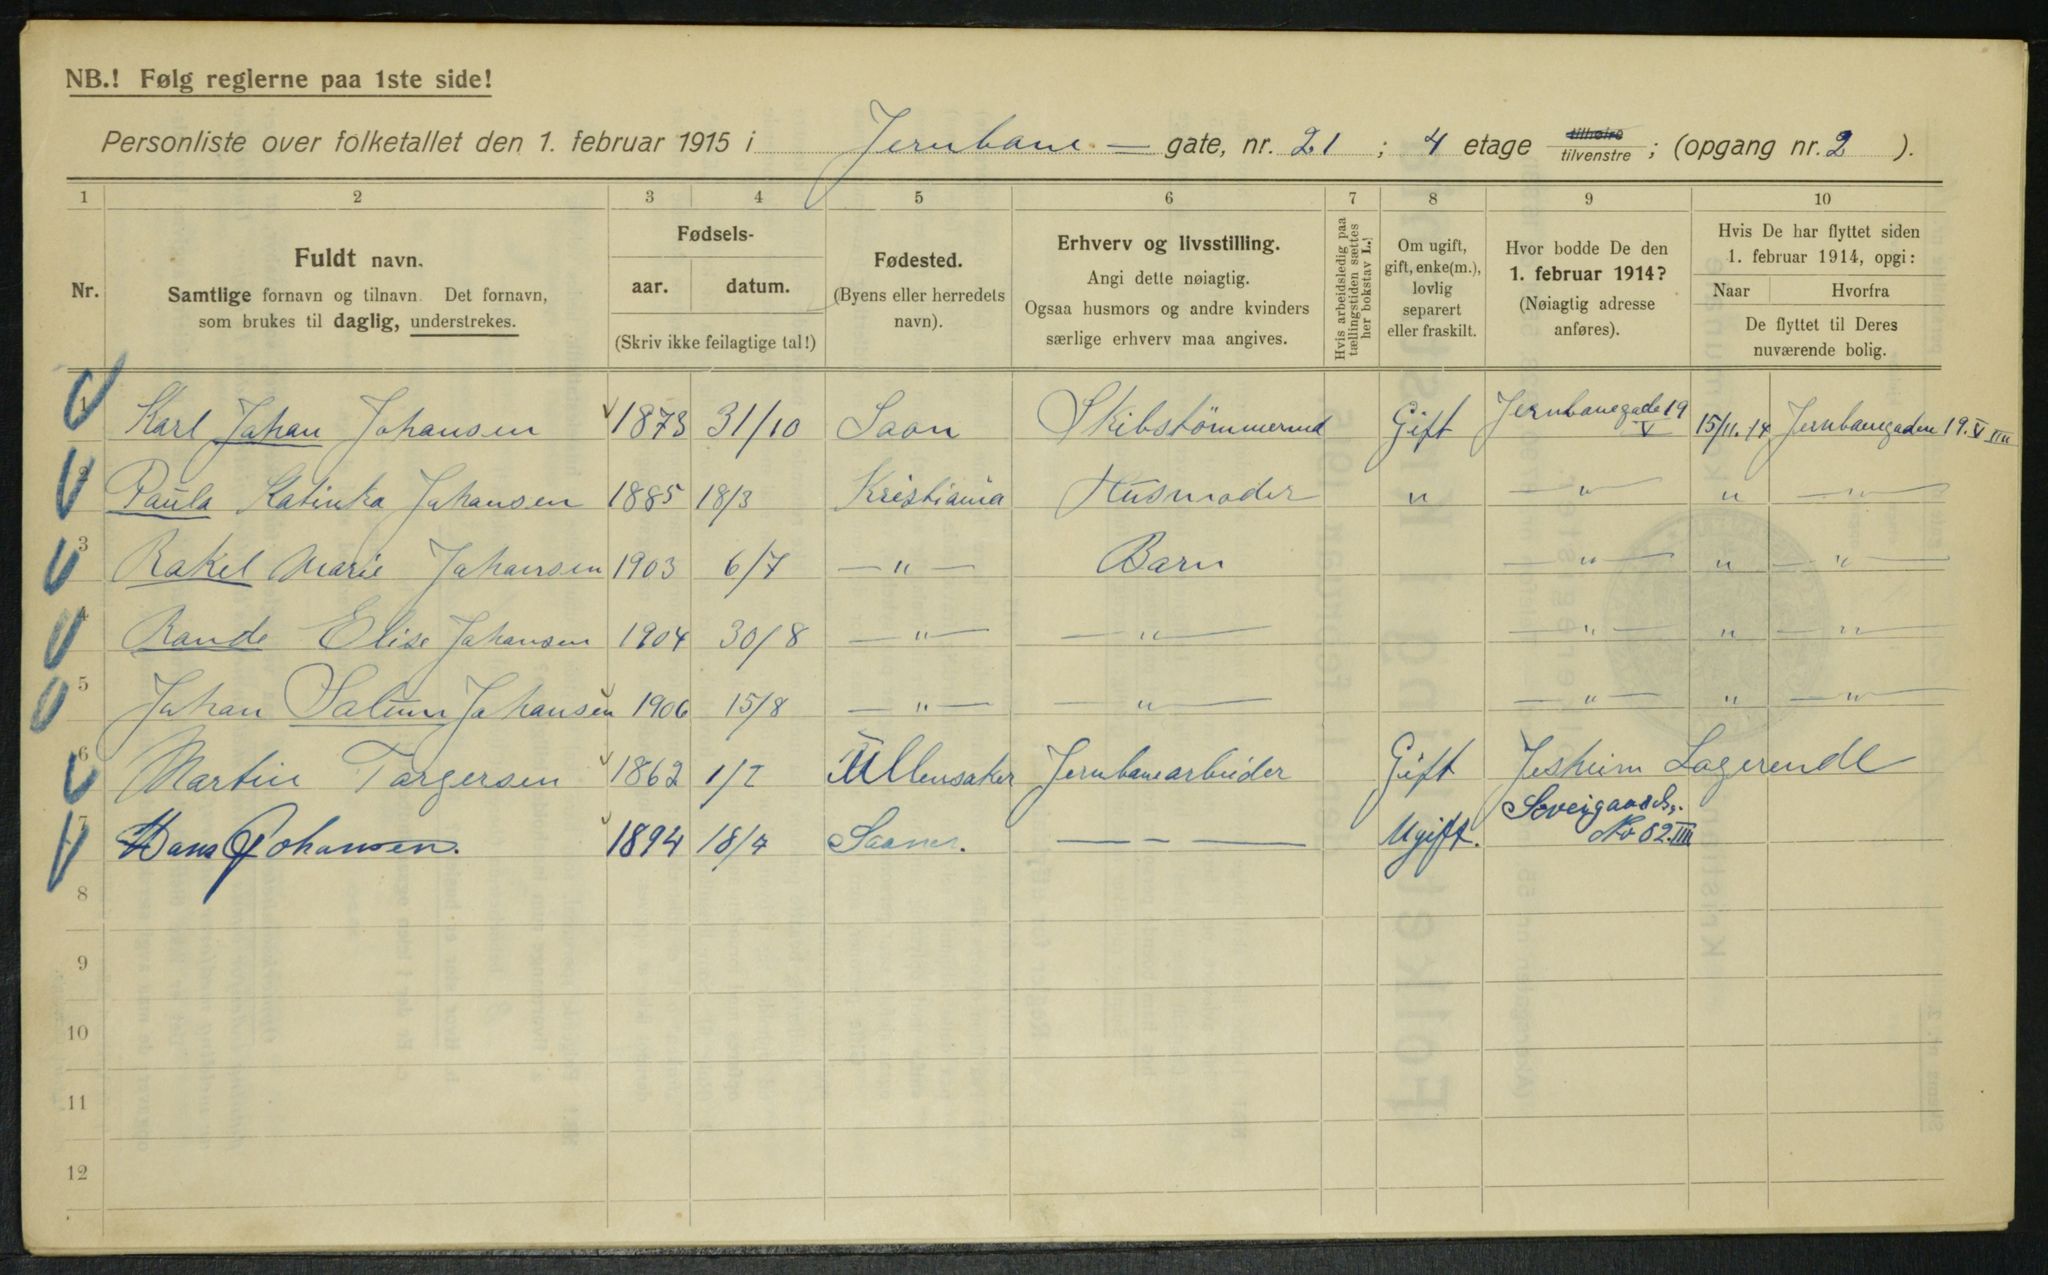 NB.! Følg reglerne paa 1ste side!
Personliste over folketallet den 1. februar 1915 i Jernbane — gate, nr. 21 ; 4 etage tilhøire tilvenstre ; (opgang nr. 2 ).
1 2 3 4 5 6 7 8 9 10
Nr.
Fuldt navn.
Samtlige fornavn og tilnavn. Det fornavn,
som brukes til daglig, understrekes.
Fødsels-
aar. datum.
(Skriv ikke feilagtige tal!)
Fødested.
(Byens eller herredets
navn).
Erhverv og livsstilling.
Angi dette nøiagtig.
Ogsaa husmors og andre kvinders
særlige erhverv maa angives.
Hvis arbeidsledig paa
tællingstiden sættes
her bokstav L.!
Om ugift,
gift, enke(m.),
lovlig
separert
eller fraskilt.
Hvor bodde De den
1. februar 1914?
(Nøiagtig adresse
anføres).
Hvis De har flyttet siden
1. februar 1914, opgi:
Naar Hvorfra
De flyttet til Deres
nuværende bolig.
1 Karl Johan Johansen 1873 31/10 Saan Skibstømmermd Gift Jernbanegade 19 V 15/11.14 Jernbanegaden 19. V
2 Paula Katinka Johansen 1885 18/3 Kristiania Husmoder " — " — " — " —
3 Rakel Marie Johansen 1903 6/7 — " — Barn — " — " — " —
4 Rande Elise Johansen 1904 30/8 — " — — " — — " — " — " —
5 Johan Johansen 1906 15/8 — " — — " — — " — " — " —
6 Martin Torgersen 1862 1/2 Ullensaker Jernbanearbeider Gift Jesheim Lagerendl
7 Hans Johansen. 1894 18/4 Saaner. — — — Ugift. Sveigaardsg.
No 62. III
8
9
10
11
12